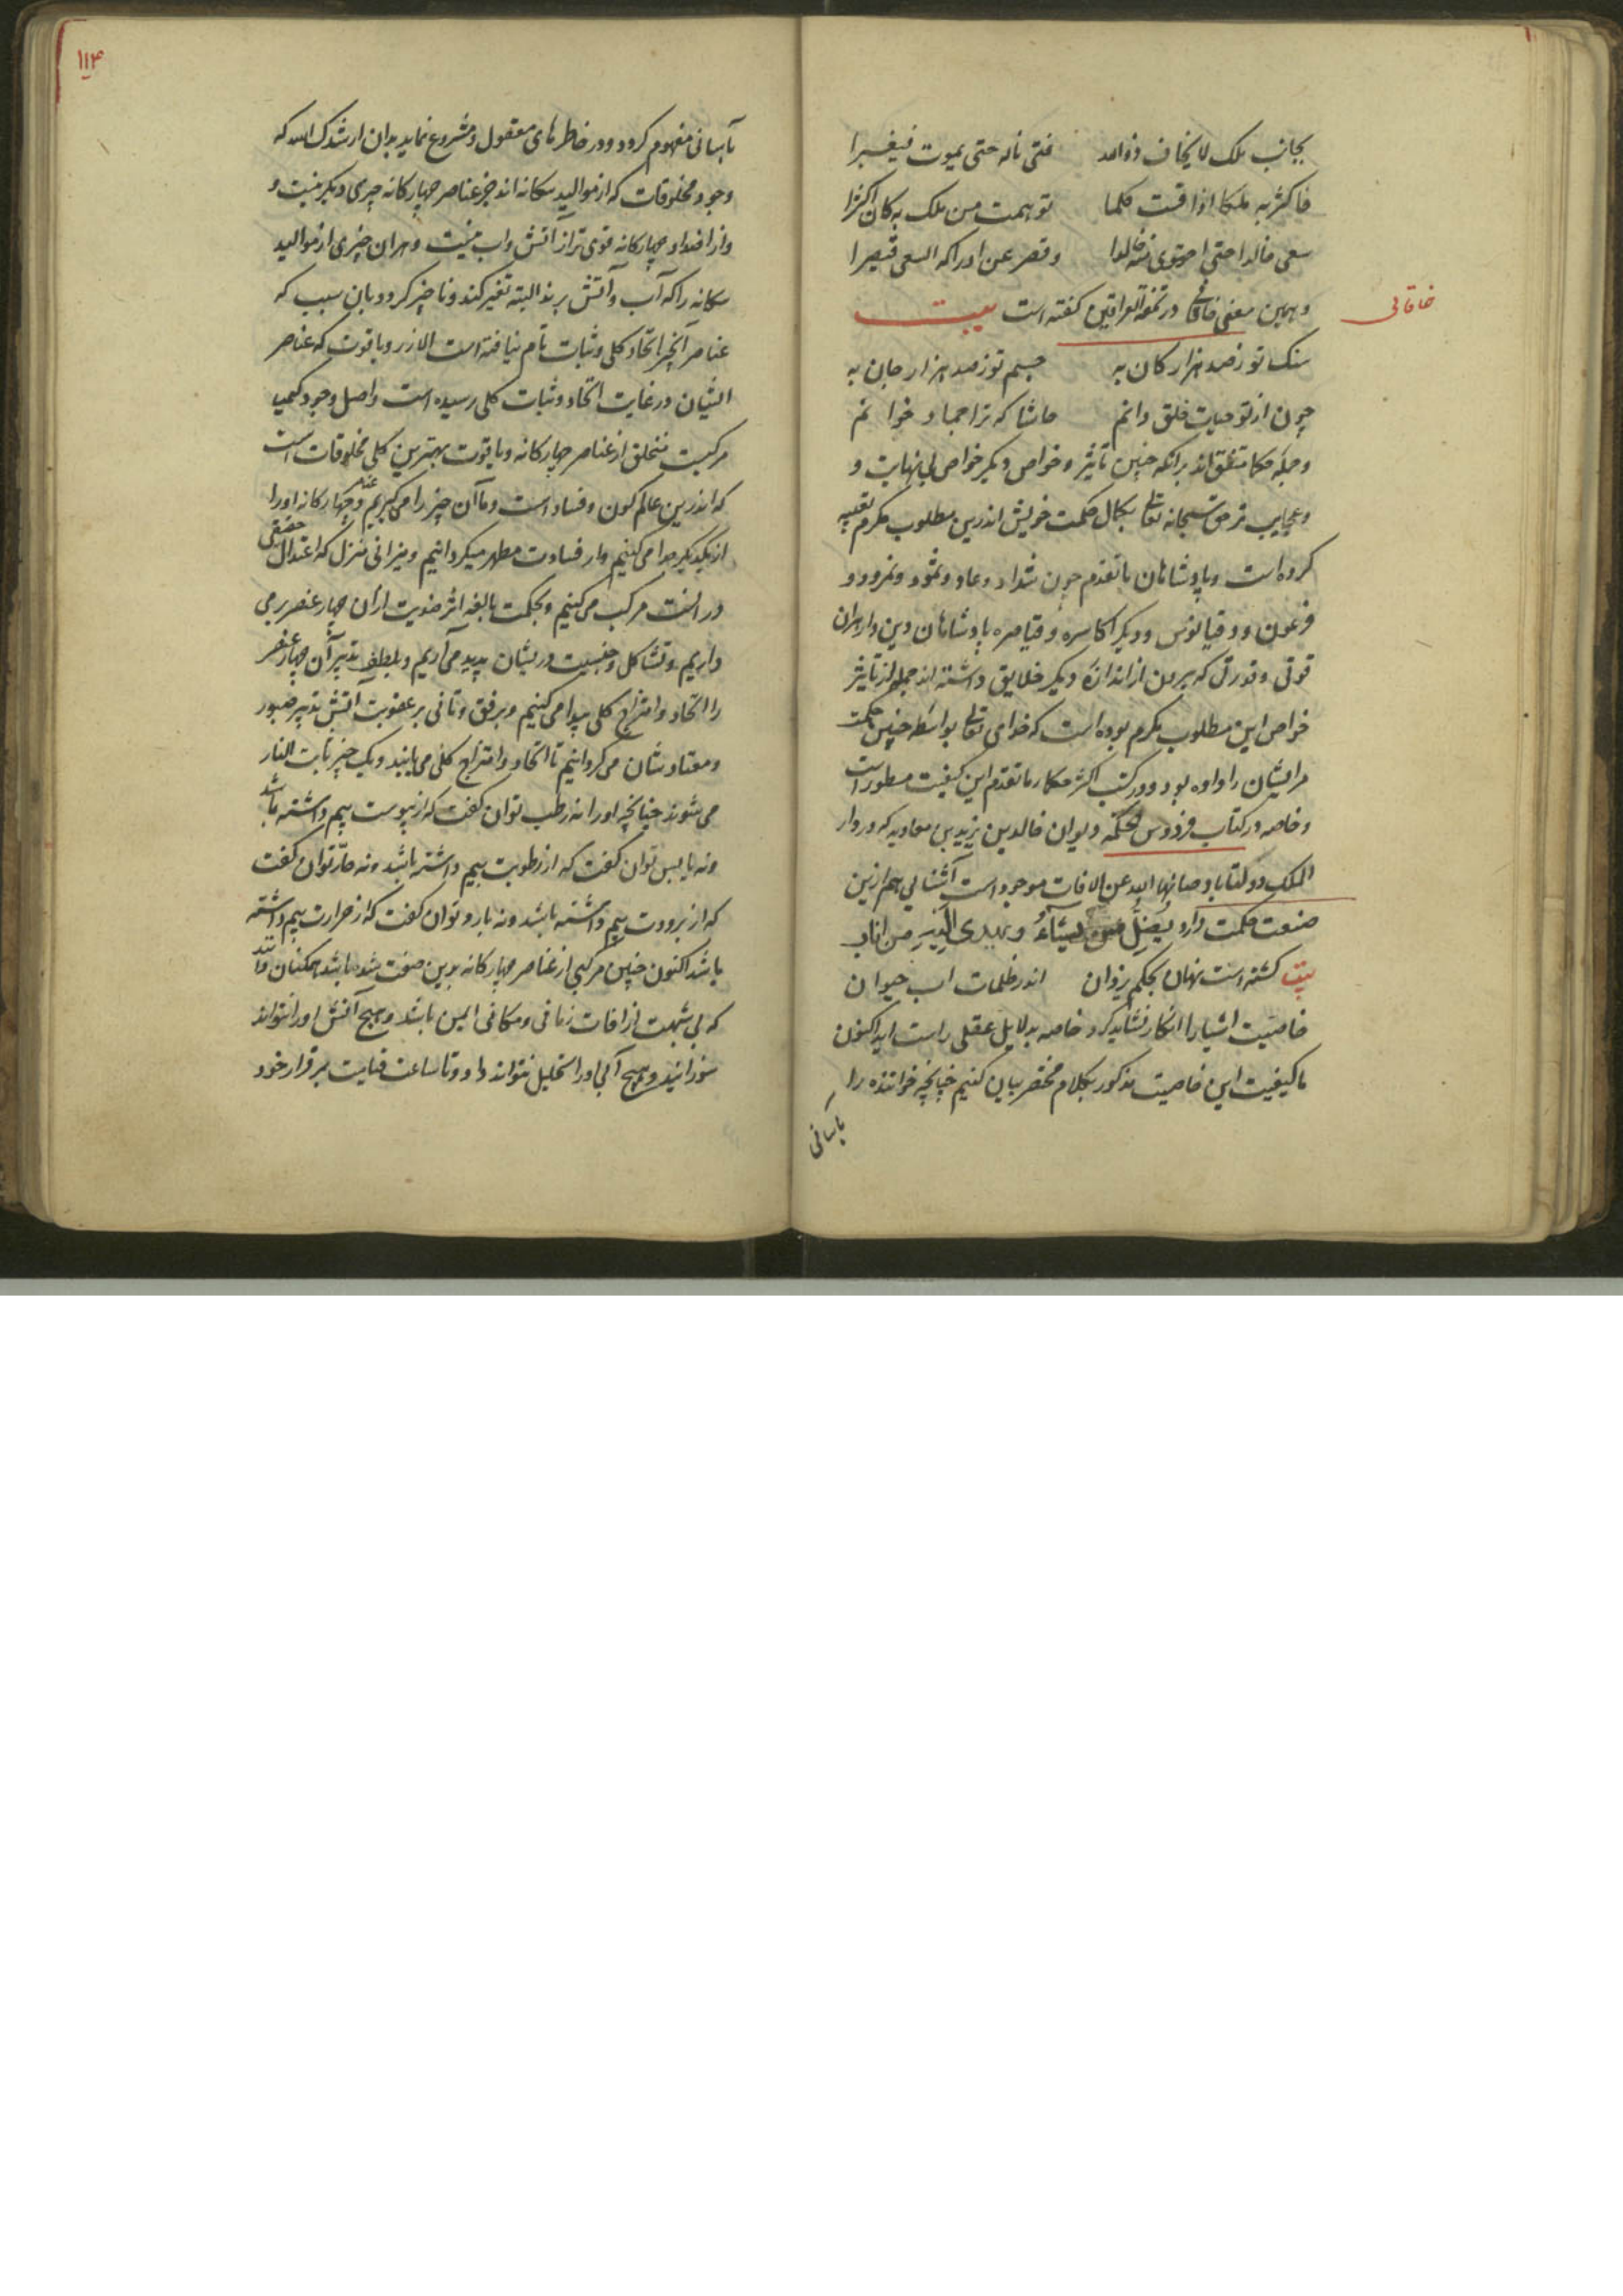 بجانب ملک لا یخاف زواله فتی ناله حتی یموت فیغبرا
فاکثر به ملکا اذا قست کلما توهمت من ملک به کان اکثرا
سعی خالدا حتی احتوی منه خالدا و قصر عن ادراکه السعی قیصرا
و همین معنی خاقانی در تحفة العراقین گفته است بیت
خاقانی
سنک تو ز صد هزار کان به جسم تو ز صد هزار جان به
چون از تو حیات خلق دانم حاشا که ترا جماد خوانم
و جمله حکما متفق اند برانکه چنین تاثیر و خواص و دیگر خواص بی نهایت و
و عجایب تر حق سبحانه تعالی بکمال حکمت خویش اندرین مطلوب مکرم تعبیه
کرده است و پادشاهان ما تقدم چون شداد و عاد و ثمود و نمرود و
فرعون و دقیانوس و دیگر اکاسره و قیاصره پادشاهان دین دار بران
قوتی و قدرتی که برون از اندازه دیگر خلایق داشته اند جمله از تاثیر
خواص این مطلوب مکرم بوده است که خدای تعالی بواسطه چنین حکمت
مر ایشان را داده بود و در کتب اکثر حکما ما تقدم این کیفیت مسطور است
و خاصه در کتاب فردوس الحکمة دیوان خالد بن یزید بن معاویه که در دار
الملک دولتاباد صانها الله عن الافات موجود است آشنایی هم ازین
صنعت حکمت دارد یضل من یشاء و یهدی الیه من اناب
بیت کشته است نهان بحکم یزدان اندر ظلمات اب حیوان
خاصیت اشیا را انکار نشاید کرد خاصه بدلایل عقلی راست اید اکنون
ما کیفیت این خاصیت مذکور بکلام مختصر بیان کنیم چنانچه خواننده را
بآسانی
۱۱۴
بآسانی مفهوم کردد و در خاطرهای معقول و مشروع نماید بدان ارشدک الله که
وجود مخلوقات که از موالید سکانه اند جز عناصر چهارکانه چیزی دیکر نیست و
و از اضداد چهارکانه قوی تر از آتش و اب نیست و هران چیزی از موالید
سکانه را که آب و آتش برند البته تغیر کند و ناچیز کردد بان سبب که
عناصر آنچیز اتحاد کلی و ثبات تام نیافته است الا زر و یاقوت که عناصر
ایشان در غایت اتحاد و ثبات کلی رسیده است و اصل وجود کیمیا
مرکبیست متخلق از عناصر چهارکانه و یاقوت بهترین کلی مخلوقات است
که اندرین عالم کون و فساد است و ما آن چیز را می کیریم و چهارکانه اورا
از یکدیکر جدا می کنیم و از فسادت مطهر میکردانیم و میزانی منزل که اعتدال حقیقی
در انست مرکب می کنیم و بحکمت بالغه اثر ضدیت ازان چهار عنصر بر می
داریم و تشاکل و جنسیت در یشان پدید می آریم و بلطف تدبیر آن چهار عنصر
را اتحاد و امتزاج کلی پیدا می کنیم و برفق و تانی بر عقوبت آتش تدبیر صبور
و معتاد شان می کردانیم تا اتحاد و امتزاج کلی می یابند و یک چیز ثابت النار
می شوند چنانچه اورا نه رطب توان کفت که از یبوست بیم داشته باشد
و نه یابس توان کفت که از رطوبت بیم داشته باشد و نه حار توان کفت
که از برودت بیم داشته باشد و نه بارد توان کفت که از حرارت بیم داشته
باشد اکنون چنین مرکبی از عناصر چهارکانه بدین صفت شده باشد همکنان دانند
که بی شبهت از افات زمانی و مکانی ایمن باشد و هیچ آتش اورا نتواند
سوزانید و هیچ آبی اورا تحلیل نتواند داد و تا ساعت قیامت برقرار خود